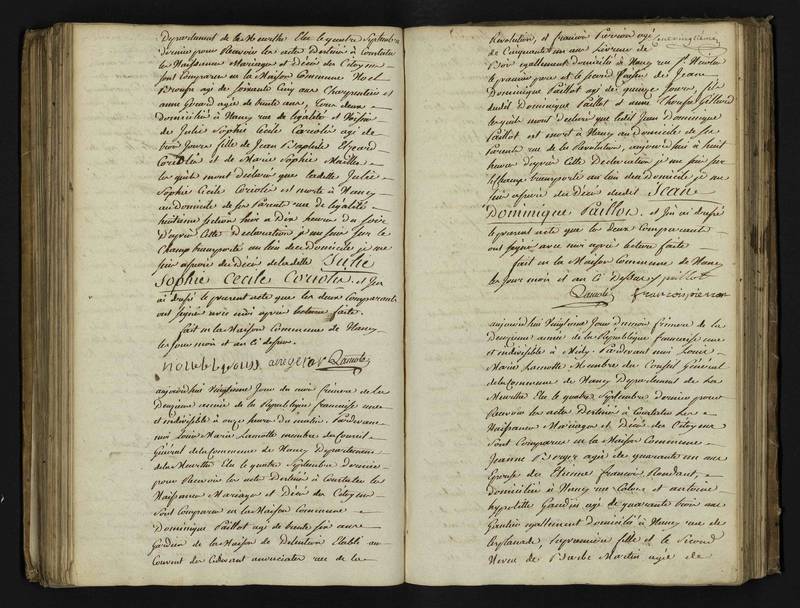 Departement de la Meurthe Elu le quatre Septembre
dernier pour Recevoir les actes Destinés à Constater
les Naissance Mariages et Décès des Citoyens
sont comparus en la Maison Commune Noel
agé de soixante cinq ans Charpentier et
anne Gérard agée de trente ans, tous deux
domiciliés à Nancy rue de l'égalité et
de Julie Sophie Cécile Coriolis agé de
trois jours fille de Jean Baptiste
Coriolis et de Marie Sophie
lesquels mont déclaré que ladite Julie
Sophie Cecile Coriolis est morte à Nancy
au domicile de ses Parents rue de l'égalité
heure a Dix heures du soir
D'après cette Déclaration je me suis sur le
Champ transporté au lieu de ce domicile je me
suis assurée du Décès de ladite Julie
Sophie Cecile Coriolis, et j'en
ai dressé le present acte que les deux comparants
ont signé avec moi après lecture faite.
fait en la Maison Commune de Nancy
les jour mois et an ci dessus.
Lamotte
aujourd'hui vingtieme jour du mois frimere de la
Deuxieme année de la Republique française une
et indivisible à onze heures du matin. Pardevant
moi Louis Marie Lamotte membre du Conseil
Général de la Commune de Nancy Departement
de la Meurthe Elu le quatre Septembre Dernier
pour Recevoir les actes Destinés à Constater les
Naissance Mariages et Décès des Citoyens
Sont Comparus en la Maison Commune
Dominique Paillot agé de trente six ans
Gardien de la Maison de Detention Etablie au
Couvent des cidevant annonciades rue de la
Revolution, et françois Pierron agé
de Cinquante un ans
également domicilié à Nancy rue St. Nicolas
le premier pere et le second Cousin de Jean
Dominique Paillot agé de quinze jours, fils
dudit Dominique Paillot et anne Therese
lesquels mont déclaré que ledit Jean Dominique
Paillot est mort à Nancy au Domicile de ses
Parents rue de la Revolution, aujourd'hui à huit
heures d'après Cette Declaration je me suis sur
le champ transporté au lieu de ce Domicile je me
suis assurée du Décès dudit Jean
Dominique Paillot. et j'en ai dressé
le present acte que les deux Comparants
ont signé avec moi après lecture faite
fait en la Maison Commune de Nancy
les jour mois et an Ci Dessus paillot
Lamotte francois pierron
aujourd'hui vingtieme jour du mois frimere de la
Deuxieme année de la Republique française une
et indivisible à Midy. Pardevant moi Louis
Marie Lamotte Membre du Conseil Général
de la Commune de Nancy Departement de la
Meurthe Elu le quatre Septembre dernier pour
Recevoir les actes Destinés à Constater les
Naissance Mariages et Décès des Citoyens
Sont Comparus en la Maison Commune
Jeanne agée de quarante un ans
Epouse de Etienne françois
domiciliée à Nancy rue et antoine
hypolitte Gaudin agé de quarante trois ans
également domicilié à Nancy rue de
l'esplanade, le premier fille et le Second
Neveu de Barbe Martin agée de